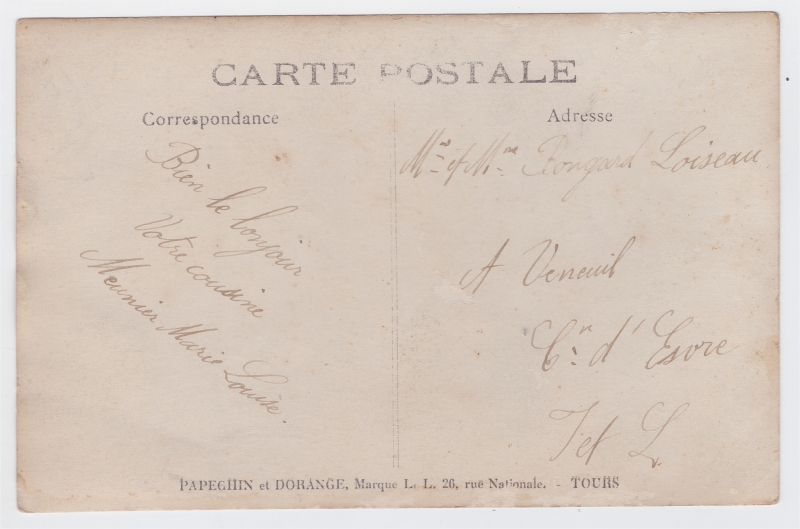 CARTE POSTALE
Correspondance
Bien le bonjour
Votre cousine
Meunier Marie Louise.
Adresse
Mr et Mme Rougard Loiseau
A Veneuil
Cne d'Esvre
I et L
PAPEGHIN et DORANGE, Marque L. L. 26, rue Nationale. - TOURS